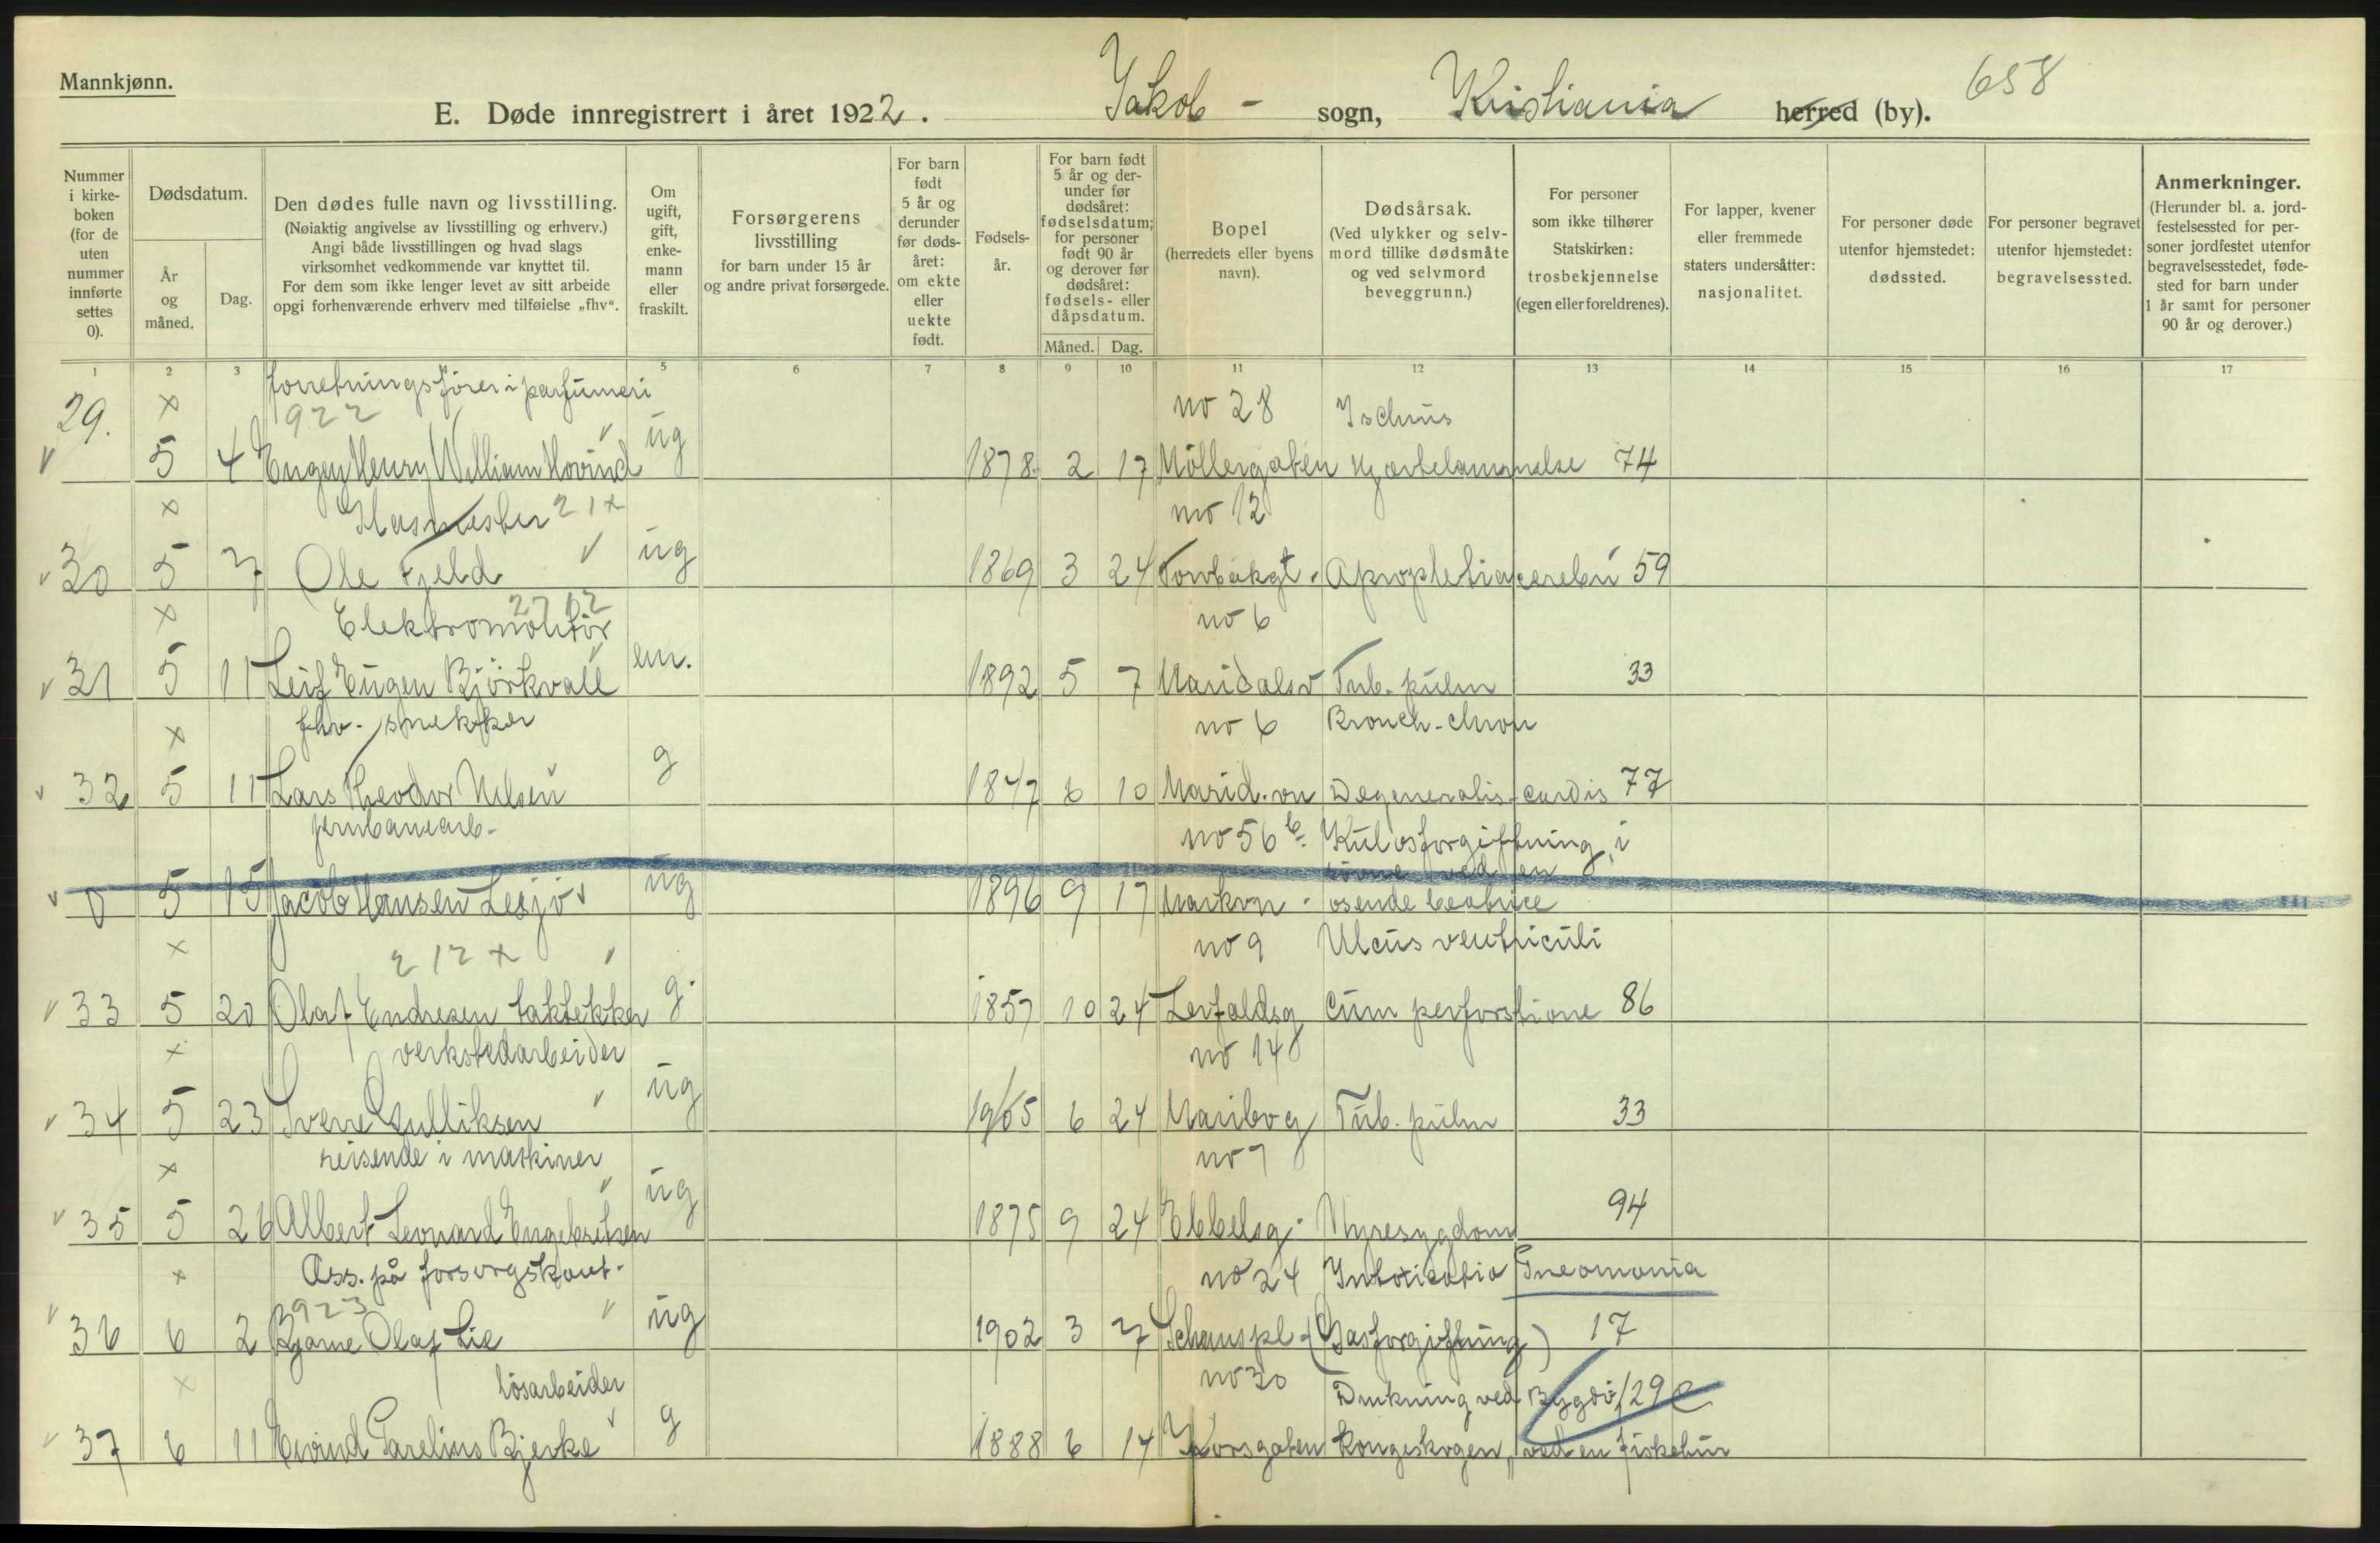 Mannkjønn.
658
E. Døde innregistrert i året 1922. Jakob - sogn, Kristiania herred (by).
Nummer i kirke-boken (for de uten nummer innførte settes 0).
Dødsdatum.
År og måned.
Dag.
Den dødes fulle navn og livsstilling.
(Nøiaktig angivelse av livsstilling og erhverv.)
Angi både livsstillingen og hvad slags
virksomhet vedkommende var knyttet til.
For dem som ikke lenger levet av sitt arbeide
opgi forhenværende erhverv med tilføielse „fhv“.
Om ugift, gift, enke-mann eller fraskilt.
Forsørgerens livsstilling
for barn under 15 år
og andre privat forsørgede.
For barn født 5 år og derunder før døds-året: om ekte eller uekte født.
Fødsels-år.
For barn født 5 år og der-under før dødsåret: fødselsdatum; for personer født 90 år og derover før dødsåret: fødsels- eller dåpsdatum.
Måned. Dag.
Bopel
(herredets eller byens navn).
Dødsårsak.
(Ved ulykker og selv-mord tillike dødsmåte og ved selvmord beveggrunn.)
For personer som ikke tilhører Statskirken: trosbekjennelse (egen eller foreldrenes).
For lapper, kvener eller fremmede staters undersåtter: nasjonalitet.
For personer døde utenfor hjemstedet: dødssted.
For personer begravet utenfor hjemstedet: begravelsessted.
Anmerkninger.
(Herunder bl. a. jord-festelsessted for per-soner jordfestet utenfor begravelsesstedet, føde-sted for barn under 1 år samt for personer 90 år og derover.)
1 2 3 5 6 7 8 9 10 11 12 13 14 15 16 17
forretningsfører i parfumeri
29. x 922 no 28 Ischus
5 4 Eugen Henry William Hovind ug 1878 2 17 Möllergaten Hjertelammelse 74
x Glasmester 21x no 12
30 5 7 Ole Fjeld ug 1869 3 24 Torvbakgt. Apoplehia cerebri 59
x 2712 no 6
Elektromontör
31 5 11 Leif Eugen Björkvall em. 1892 5 7 Maridalsv Tub. pulm 33
x fhv. snekker no 6 Bronch-chron
32 5 11 Lars Theodor Nilsen g 1847 8 10 Marid.vn Degeneratis cardis 77
jernbanearb- no 56 b Kulosforgiftning i
0 5 15 Jacob Hansen Lesjö ug 1896 9 17 Markvn. osende
x 212x no 9 Ulcus ventriculi
33 5 20 Olaf Endresen taktekker g. 1857 10 24 Lerfaldsg cum perforatione 86
x verkstedarbeider no 14
34 5 23 Sverre Gulliksen ug 1905 6 24 Maribog Tub. pulm 33
x reisende i maskiner no 7
35 5 26 Albert Leonard Engebretsen ug 1875 9 24 Ebbelsg. Nyresygdom 94
x Ass. på forsorgskont. no 24 Intoxicatio Pneomonia
923
36 6 2 Bjarne Olaf Lie ug 1902 3 27 Schouspl. (Gasforgiftning) 17
x lösarbeider no 30 Drukning ved Bygdö 129 e
37 6 11 Eivind Parelius Bjerke g 1888 6 14 Korsgaten kongeskogen, ved en fiskebur